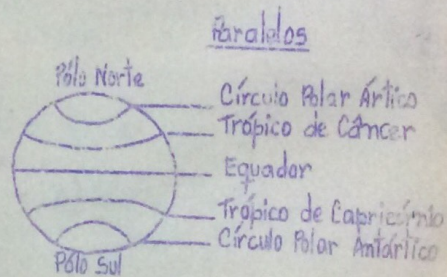 Paralelos
Pólo Norte
Círculo Polar Ártico
Trópico de Câncer
Equador
Trópico de Capricórnio
Círculo Polar Antártico
Pólo Sul